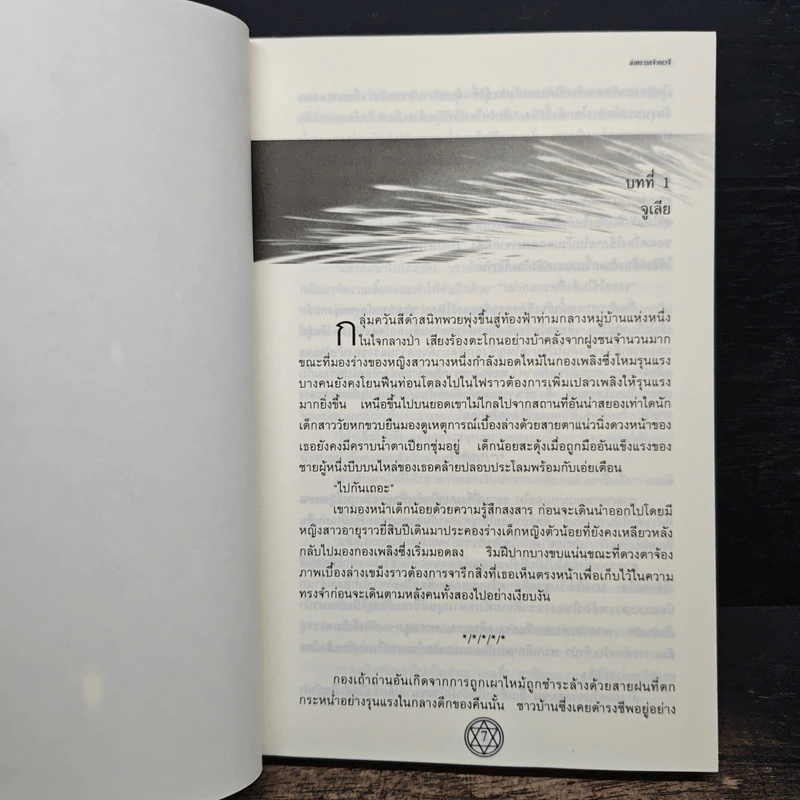 บทที่ 1
จูเลีย
กลุ่มควันสีดำสนิทพวยพุ่งขึ้นสู่ท้องฟ้าท่ามกลางหมู่บ้านแห่งหนึ่ง
ในใจกลางป่า เสียงร้องตะโกนอย่างบ้าคลั่งจากฝูงชนจำนวนมาก
ขณะที่มองร่างของหญิงสาวนางหนึ่งกำลังมอดไหม้ในกองเพลิงซึ่งโหมรุนแรง
บางคนยังคงโยนฟืนท่อนโตลงไปในไฟราวต้องการเพิ่มเปลวเพลิงให้รุนแรง
มากยิ่งขึ้น เหนือขึ้นไปบนยอดเขาไม่ไกลไปจากสถานที่อันน่าสยองเท่าใดนัก
เด็กสาววัยหกขวบยืนมองดูเหตุการณ์เบื้องล่างด้วยสายตาแน่วนิ่งดวงหน้าของ
เธอยังคงมีคราบน้ำตาเปียกชุ่มอยู่ เด็กน้อยสะดุ้งเมื่อถูกมืออันแข็งแรงของ
ชายผู้หนึ่งบีบบนไหล่ของเธอคล้ายปลอบประโลมพร้อมกับเอ่ยเตือน
“ไปกันเถอะ”
เขามองหน้าเด็กน้อยด้วยความรู้สึกสงสาร ก่อนจะเดินนำออกไปโดยมี
หญิงสาวอายุราวยี่สิบปีเดินมาประคองร่างเด็กหญิงตัวน้อยที่ยังคงเหลียวหลัง
กลับไปมองกองเพลิงซึ่งเริ่มมอดลง ริมฝีปากบางขบแน่นขณะที่ดวงตาจ้อง
ภาพเบื้องล่างเขม็งราวต้องการจารึกสิ่งที่เธอเห็นตรงหน้าเพื่อเก็บไว้ในความ
ทรงจำก่อนจะเดินตามหลังคนทั้งสองไปอย่างเงียบงัน
*/*/*/*/*
กองเถ้าถ่านอันเกิดจากการถูกเผาไหม้ถูกชำระล้างด้วยสายฝนที่ตก
กระหน่ำอย่างรุนแรงในกลางดึกของคืนนั้น ชาวบ้านซึ่งเคยดำรงชีพอยู่อย่าง
7